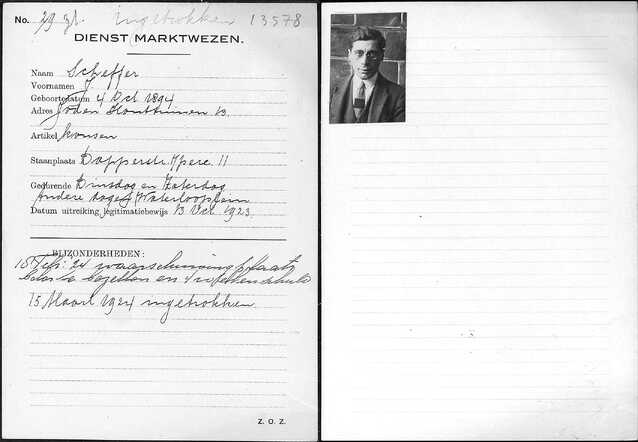 No. 29 gr. ingetrokken 13578
DIENST MARKTWEZEN.
Naam Scheffer
Voornamen J.
Geboortedatum 4 Oct 1894
Adres Joden Houttuinen 13.
Artikel kousen
Staanplaats Dapperstr. perc. 11
Gedurende Dinsdag en Zaterdag
Andere dagen Waterlooplein
Datum uitreiking legitimatiebewijs 13 Oct. 1923.
BIJZONDERHEDEN:
15 Feb: 24 waarschuwing plaats
te bezetten en schuld
15 Maart 1924 ingetrokken.
Z. O. Z.